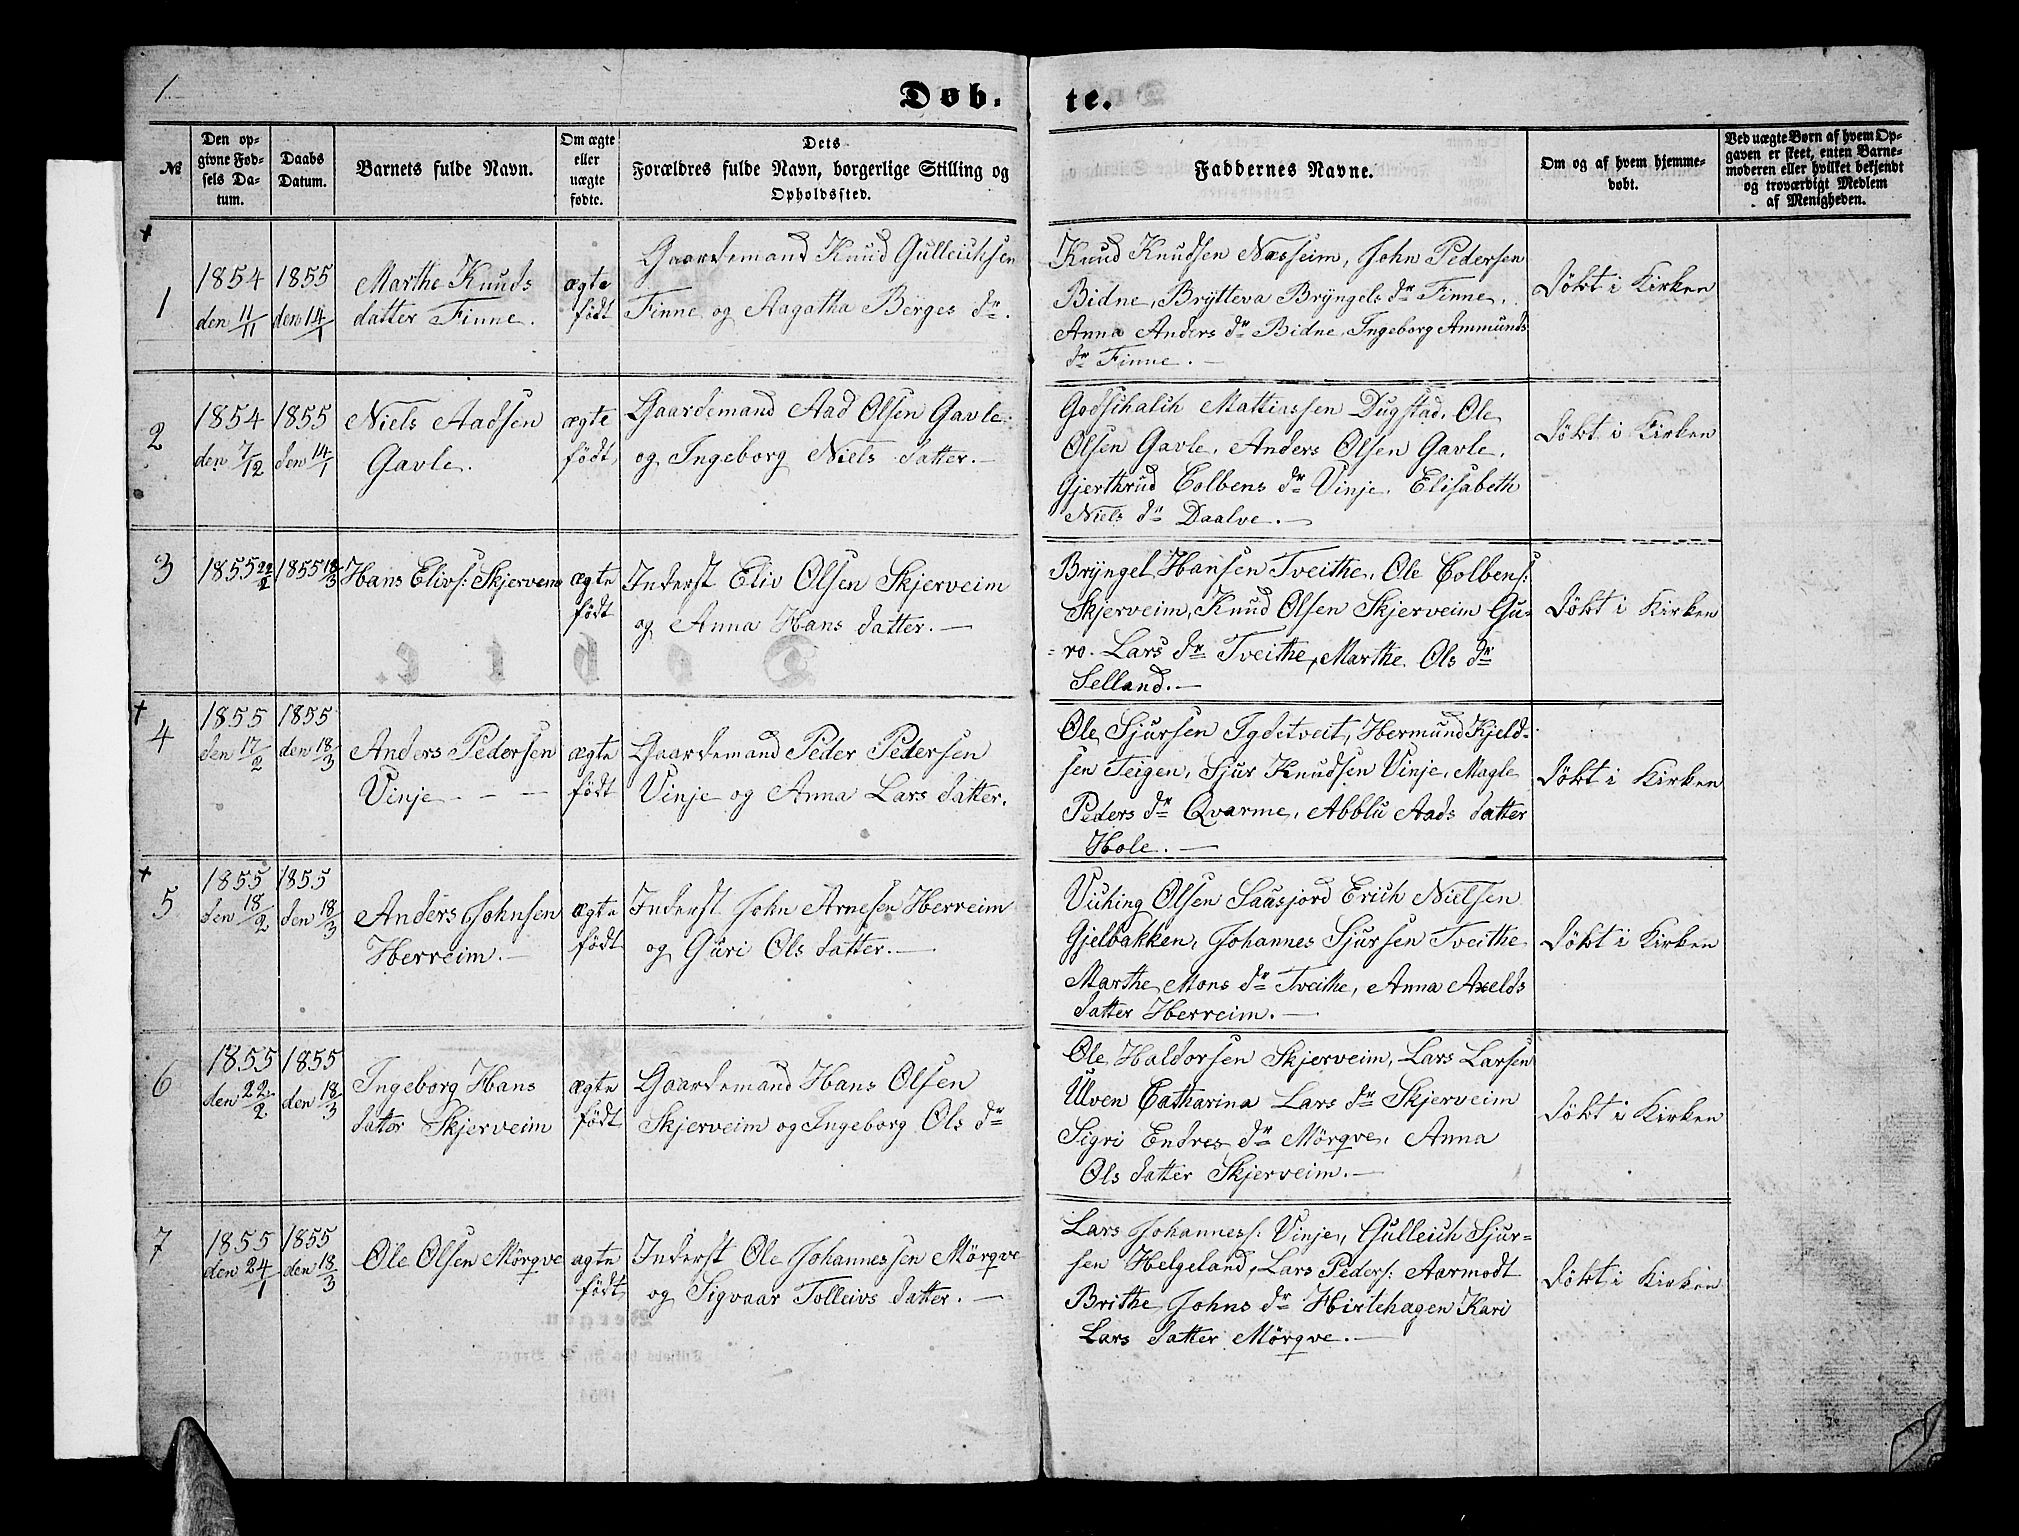 1
Døb-te.
№
Den opgivne Fødsels Datum.
Daabs Datum.
Barnets fulde Navn.
Om ægte eller uægte født.
Dets Forældres fulde Navn, borgerlige Stilling og Opholdssted.
Faddernes Navne.
Om og af hvem hjemmedøbt.
Ved uægte Børn af hvem Opgaven er skeet, enten Barnemoderen eller hvilket bekjendt og troværdigt Medlem af Menigheden.
+
1
1854
den 11/11
1855
den 14/1
Marthe Knuds
datter Finne.
ægte
født
Gaardemand Knud Gulleichsen
Finne og Aagatha Berges dr.
Knud Knudsen Næsseim, John Pedersen
Bidne, Brytteva Brÿngels dr Finne,
Anna Anders dr Bidne, Ingeborg Ammunds
dr Finne. —
Døbt i Kirken
2
1854
den 7/12
1855
den 14/1
Niels Aadsen
Gavle.
ægte
født
Gaardemand Aad Olsen Gavle
og Ingeborg Niels datter. —
Godschalch Mathiassen Dugstad, Ole
Olsen Gavle, Anders Olsen Gavle,
Gjerthrud Colbens dr Vinje, Elisabeth
Niels dr Daalve. —
Døbt i Kirken
3
1855 22/2
1855 18/3
Hans Elivs: Skjerveim
ægte
født
Inderst Eliv Olsen Skjerveim
og Anna Hans datter. —
Brÿngel Hansen Tveithe, Ole Colbens:
Skjerveim, Knud Olsen Skjerveim Gu-
-ro Lars dr Tveithe, Marthe Ols dr
Selland. —
Døbt i Kirken
+
4
1855
den 17/2
1855
den 18/3
Anders Pedersen
Vinje — — —
ægte
født
Gaardemand Peder Pedersen
Vinje og Anna Lars datter.
Ole Sjursen Tgdetveit, Hermund Kjeld-
sen Teigen, Sjur Knudsen Vinje, Magle
Peders dr Qvarme, Abblu Aads datter
Hole. —
Døbt i Kirken
+
5
1855
den 18/2
1855
den 18/3
Anders Johnsen
Herreim. —
ægte
født
Inderst John Arnesen Herreim
og Guri Ols datter. —
Viching Olsen Saasjord Erich Nielsen
Gjelbakken, Johannes Sjursen Tveithe
Marthe Mons dr Tveithe, Anna Axelds
datter Herreim. —
Døbt i Kirken
6
1855
den 22/2
1855
den 18/3
Ingeborg Hans
datter Skjerveim
ægte
født
Gaardemand Hans Olsen
Skjerveim og Ingeborg Ols dr
Ole Haldorsen Skjerveim, Lars Larsen
Ulven Catharina Lars dr Skjerveim
Sigri Endres dr Mörqve, Anna
Ols datter Skjerveim. —
Døbt i Kirken
7
1855
den 24/1
1855
den 18/3
Ole Olsen Mörqve
ægte
født
Inderst Ole Johannessen Mörqve
og Sigvaar Tolleivs datter. —
Lars Johanness: Vinje, Gulleich Sjur-
sen Helgeland, Lars Peders: Aarmodt
Brithe Johns dr Hirtehagen Kari
Lars datter Mörqve. —
Døbt i Kirken